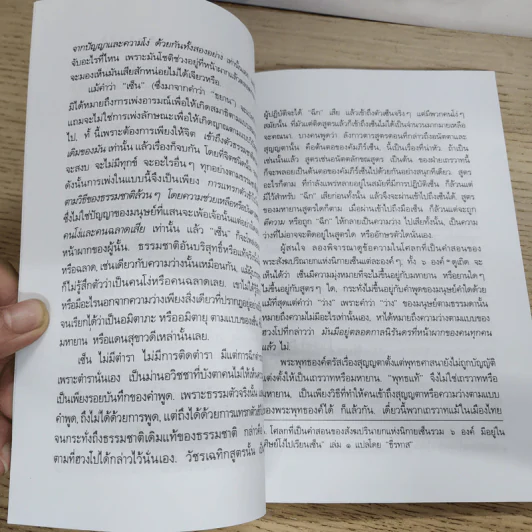 จากปัญญาและความโง่ ด้วยกันทั้งสองอย่าง เท่านั้น
จับอะไรที่ไหน เพราะมันโชติช่วงอยู่ที่หน้าผากแล้วตลอด
จะมองเห็นมันเสียสักหน่อยไม่ได้เจียวหรือ
แม้คำว่า "เซ็น" (ซึ่งมาจากคำว่า "ธยาน")
มิได้หมายถึงการเพ่งอารมณ์เพื่อให้เกิดสมาธิตามแบบ
แถมจะไม่ใช่การเพ่งลักษณะเพื่อให้เกิดญาณตามแบบ
ไป. ทั้งนี้เพราะต้องการเพียงให้จิต เข้าถึงตัวธรรมชาติ
เดิมของมัน เท่านั้น แล้วเรื่องก็จบกัน โดยที่จิตชนิดนั้น
จะสงบ จะไม่มีทุกข์ จะอะไรอื่นๆ ทุกอย่างตามธรรม
ดังนั้นการเพ่งในแบบนี้จึงเป็นเพียง การแทรกตัวเข้าไป
ตามวิถีของธรรมชาติล้วนๆ โดยความช่วยเหลือหรือ
ซึ่งไม่ใช่ปัญญาของมนุษย์ที่แสนจะเฟ้อเจ้อนั้น
คนโง่และคนฉลาดเสีย เท่านั้น แล้ว "เซ็น" ก็จะ
หน้าผากของผู้นั้น. ธรรมชาติอันบริสุทธิ์หรือแท้จริง
หรือฉลาด, เช่นเดียวกับความว่างนั้นเหมือนกัน
ก็ไม่รู้สึกตัวว่าเป็นคนโง่หรือคนฉลาดเลย. เขาไม่
หรือมีอะไรนอกจากความว่างเพียงสิ่งเดียวที่ปรากฏอยู่
จนเรียกได้ว่าเป็นอมิตาภะ หรืออมิตายุ ตามแบบของ
มหายาน หรือแดนสุขาวดีเหล่านั้นเลย.
เซ็น ไม่มีตำรา ไม่มีการติดตำรา มีแต่การฉีก
เพราะตำรานั่นเอง เป็นม่านอวิชชาที่บังตาคนไม่ให้เห็น
เป็นเพียงรอยบันทึกของคำพูด. เพราะธรรมตัวจริงนั้น
คำพูด, ถึงไม่ได้ด้วยการพูด, แต่ถึงได้ด้วยการแทรกตัว
จนกระทั่งถึงธรรมชาติเดิมแท้ของธรรมชาติ กล่าวคือ
ตามที่ฮวงโปได้กล่าวไว้นั่นเอง. วัชรเฉทิกสูตรนั้น
ผู้ปฏิบัติจะได้ "ฉีก" เสีย แล้วเข้าถึงตัวเซ็นจริงๆ แต่มีพวกคนโง่ๆ
สมัยนั้น ที่มัวแต่ติดสูตรแล้วก็เข้าถึงเซ็นไม่ได้เป็นจำนวนมากมายเหลือ
จะคณนา. บางคนพูดว่า ลังกาวตารสูตรตอนที่กล่าวถึงอนัตตาและ
สุญญตานั้น คือต้นตอของคัมภีร์เซ็น. นี้เป็นเรื่องที่น่าหัว ถ้าเป็น
เช่นนั้นแล้ว สูตรเช่นอนัตตลักขณสูตร เป็นต้น ของฝ่ายเถรวาทนี้
ก็จะพลอยเป็นต้นตอของคัมภีร์เซ็นไปด้วยกันอย่างสนุกทีเดียว. สูตร
อะไรก็ตาม ที่กำลังแพร่หลายอยู่ในสมัยที่มีการปฏิบัติเซ็น ก็ล้วนแต่
มีไว้สำหรับ "ฉีก" เสียก่อนทั้งนั้น แล้วจึงจะผ่านเข้าไปถึงเซ็นได้. สูตร
ของมหายานสูตรใดก็ตาม เมื่อจะผ่านเข้าไปถึงมือเซ็น ก็ล้วนแต่จะถูก
ตีความ หรือถูก "ฉีก" ให้กลายเป็นความว่าง ไปเสียทั้งนั้น, เป็นความ
ว่างที่ไม่อาจจะติดอยู่ในสูตรใด หรืออักษรตัวใดนั่นเอง.
ผู้สนใจ ลองพิจารณาดูข้อความในโศลกที่เป็นคำสอนของ
พระสังฆปริณายกแห่งนิกายเซ็นแต่ละองค์ๆ ทั้ง ๖ องค์*ดูเถิด จะ
เห็นได้ว่า เซ็นมีความมุ่งหมายที่จะไม่ขึ้นอยู่กับมหายาน หรือยานใดๆ
ไม่ขึ้นอยู่กับสูตรใดๆ ใด, กระทั่งไม่ขึ้นอยู่กับคำพูดของมนุษย์ใดคำใด
แม้ที่สุดแต่คำว่า "ว่าง" เพราะคำว่า "ว่าง" ของมนุษย์ตามธรรมดานั้น
หมายถึงความไม่มีอะไรเท่านั้นเอง, หาหมายถึงความว่างตามแบบของ
ฮวงโปที่กล่าวว่า มันมีอยู่ตลอดกาลนิรันดรที่หน้าผากของคนทุกคน
แล้ว ไม่.
พระพุทธองค์ตรัสเรื่องสุญญตาตั้งแต่พุทธศาสนายังไม่ถูกบัญญัติ
แต่งตั้งให้เป็นเถรวาทหรือมหายาน, "พุทธแท้" จึงไม่ใช่เถรวาทหรือ
มหายาน, เป็นเพียงวิธีที่ทำให้คนเข้าถึงสุญญตาหรือความว่างตามแบบ
ของพระพุทธองค์ได้ ก็แล้วกัน. เดี๋ยวนี้พวกเถรวาทแม้ในเมืองไทย
โศลกที่เป็นคำสอนของสังฆปริณายกแห่งนิกายเซ็นรวม ๖ องค์ มีอยู่ใน
"เล่ม ๑ แปลโดย "ธีรทาส"